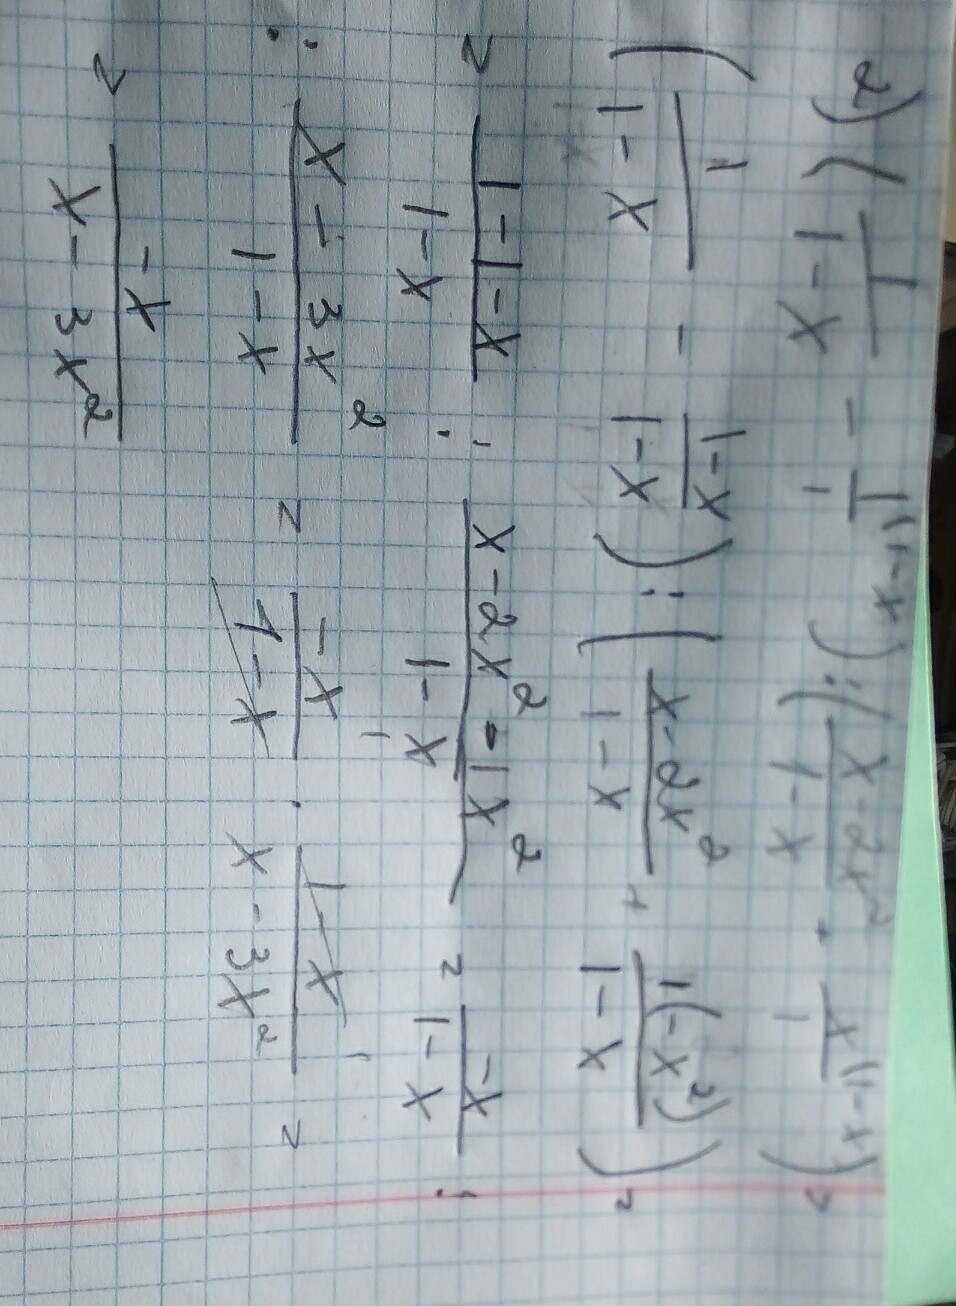 2) ( 1/(1-x) - 1/1 ^(1-x) ) : ( (x-2x²)/(1-x) + x/1 ^(1-x) ) =
( 1/(1-x) - (1-x)/(1-x) ) : ( (x-2x²)/(1-x) + 1(-x²)/(1-x) ) =
= (1-1-x)/(1-x) : (x-2x²-1x²)/(1-x) = -x/(1-x) :
: (x-3x²)/(1-x) = -x/(1-x) · (1-x)/(x-3x²) =
= -x/(x-3x²)